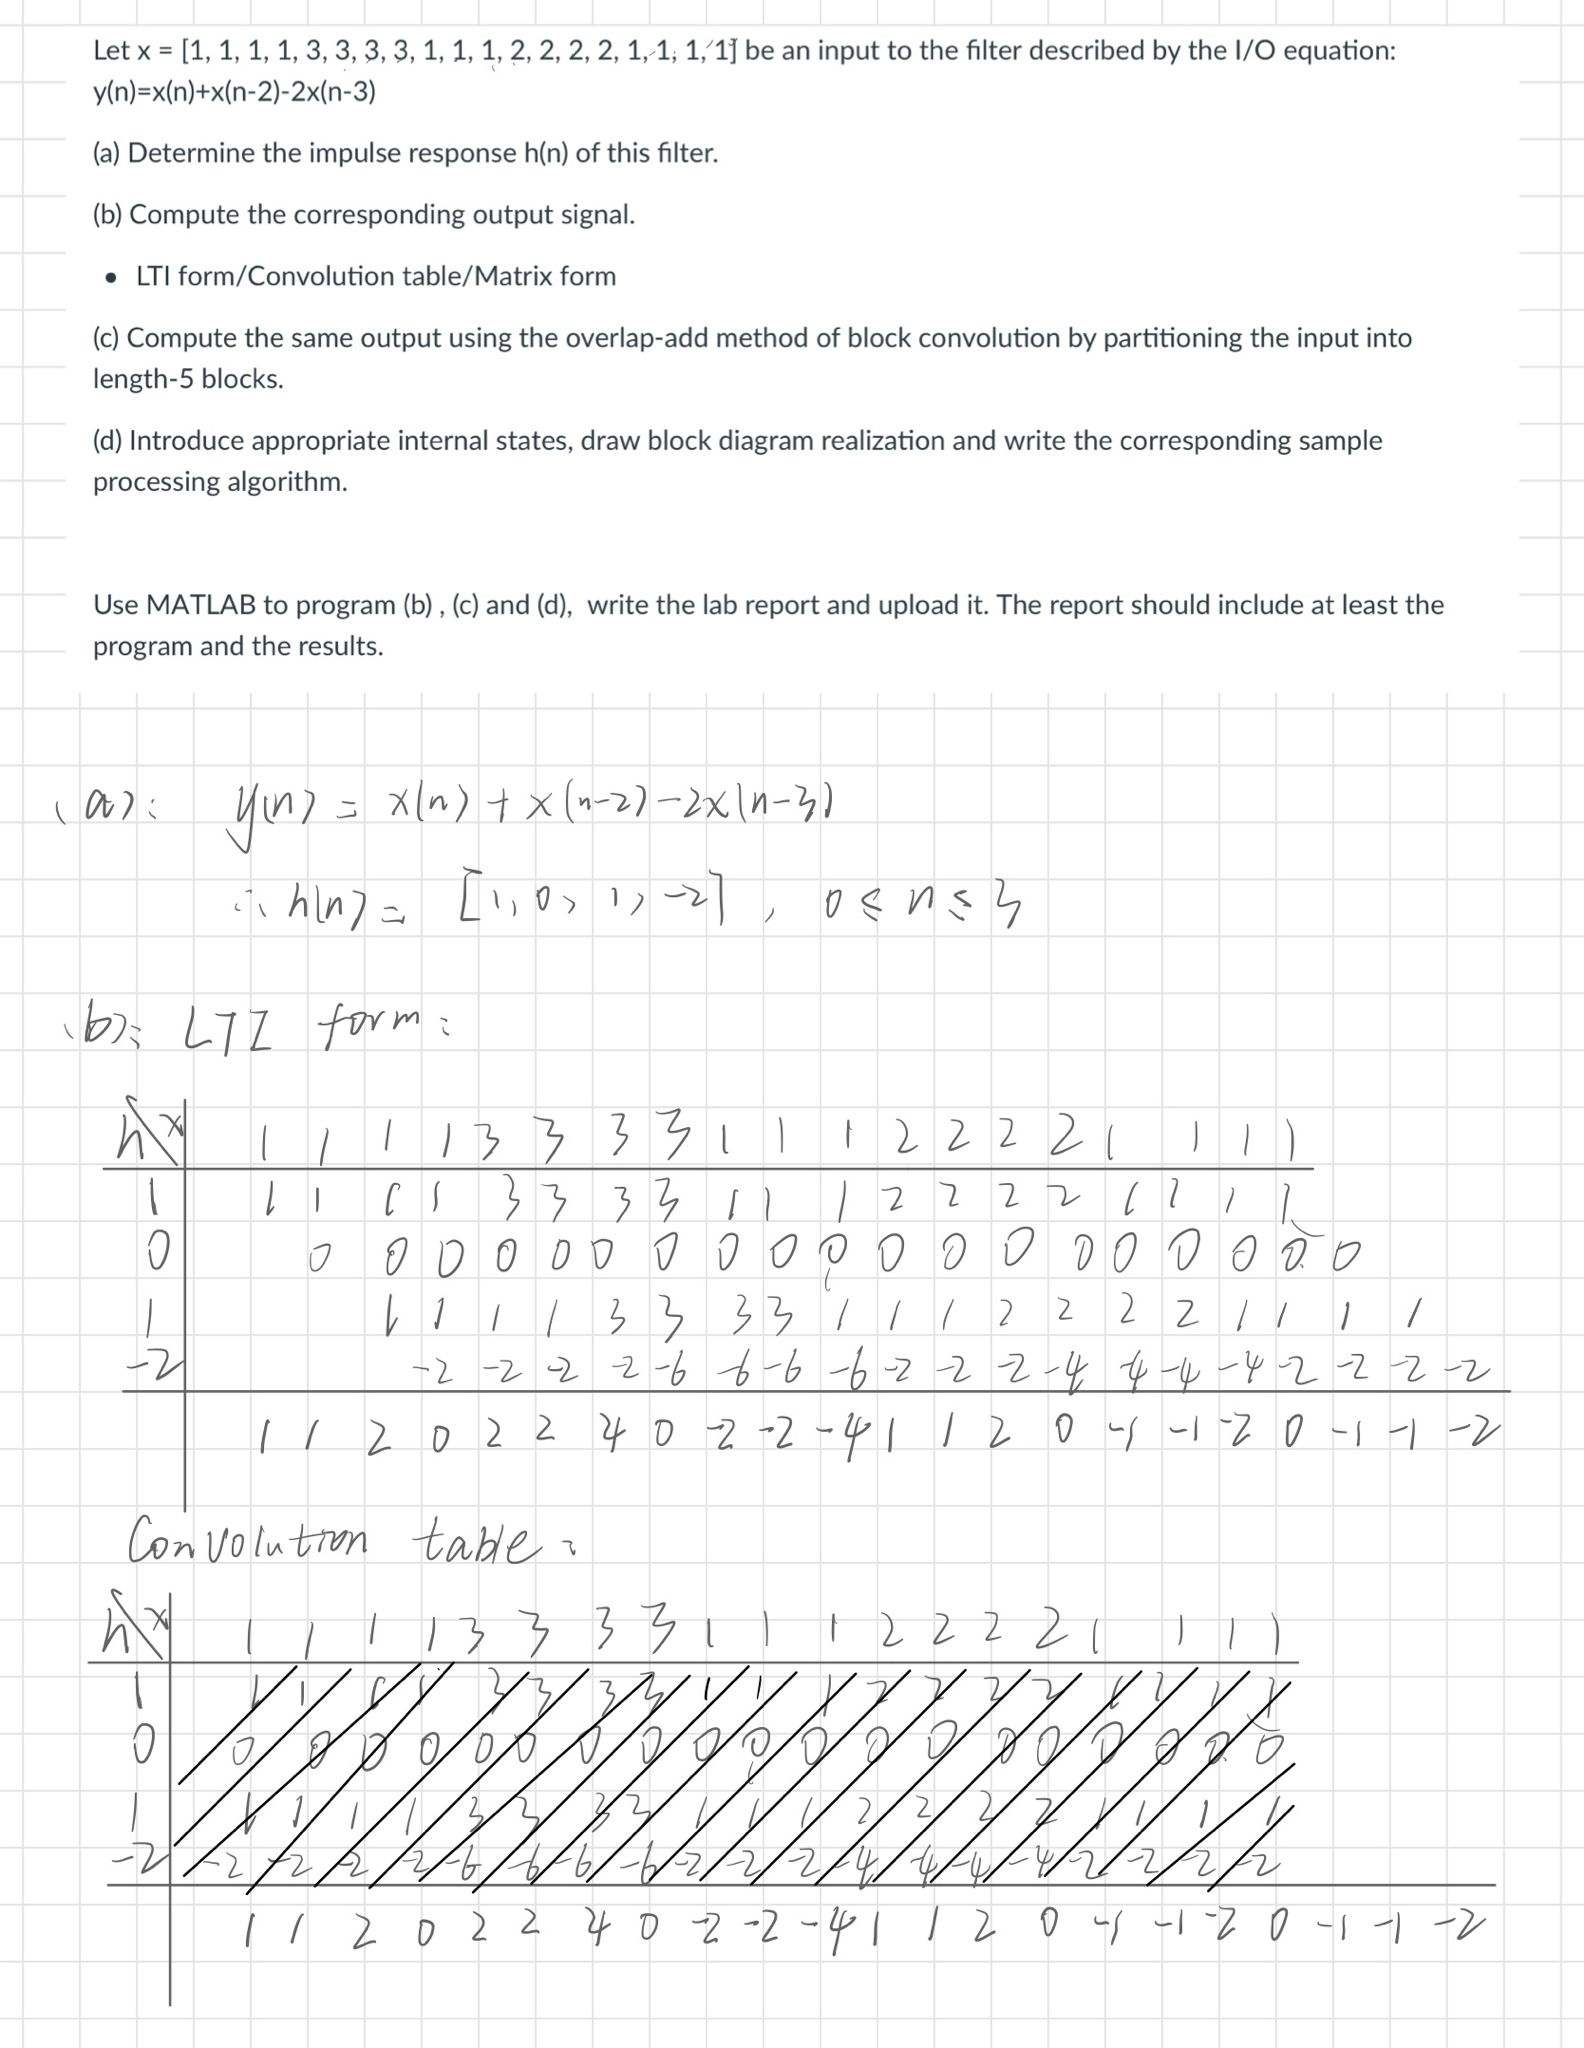 Let x = [1, 1, 1, 1, 3, 3, 3, 3, 1, 1, 1, 2, 2, 2, 2, 1, 1, 1, 1] be an input to the filter described by the I/O equation:
y(n)=x(n)+x(n-2)-2x(n-3)
(a) Determine the impulse response h(n) of this filter.
(b) Compute the corresponding output signal.
• LTI form/Convolution table/Matrix form
(c) Compute the same output using the overlap-add method of block convolution by partitioning the input into
length-5 blocks.
(d) Introduce appropriate internal states, draw block diagram realization and write the corresponding sample
processing algorithm.
Use MATLAB to program (b) , (c) and (d), write the lab report and upload it. The report should include at least the
program and the results.
(a): y(n) = x(n) + x(n-2) -2x(n-3)
∴ h(n) = [1, 0, 1, -2] , 0 ≤ n ≤ 3
(b): LTI form:
h\x 1 1 1 1 3 3 3 3 1 1 1 2 2 2 2 1 1 1 1
1 1 1 1 1 3 3 3 3 1 1 1 2 2 2 2 1 1 1 1
0 0 0 0 0 0 0 0 0 0 0 0 0 0 0 0 0 0 0 0
1 1 1 1 1 3 3 3 3 1 1 1 2 2 2 2 1 1 1 1
-2 -2 -2 -2 -2 -6 -6 -6 -6 -2 -2 -2 -4 -4 -4 -4 -2 -2 -2 -2
1 1 2 0 2 2 4 0 -2 -2 -4 1 1 2 0 -1 -1 -2 0 -1 -1 -2
Convolution table:
h\x 1 1 1 1 3 3 3 3 1 1 1 2 2 2 2 1 1 1 1
1 1 1 1 1 3 3 3 3 1 1 1 2 2 2 2 1 1 1 1
0 0 0 0 0 0 0 0 0 0 0 0 0 0 0 0 0 0 0 0
1 1 1 1 1 3 3 3 3 1 1 1 2 2 2 2 1 1 1 1
-2 -2 -2 -2 -2 -6 -6 -6 -6 -2 -2 -2 -4 -4 -4 -4 -2 -2 -2 -2
1 1 2 0 2 2 4 0 -2 -2 -4 1 1 2 0 -1 -1 -2 0 -1 -1 -2